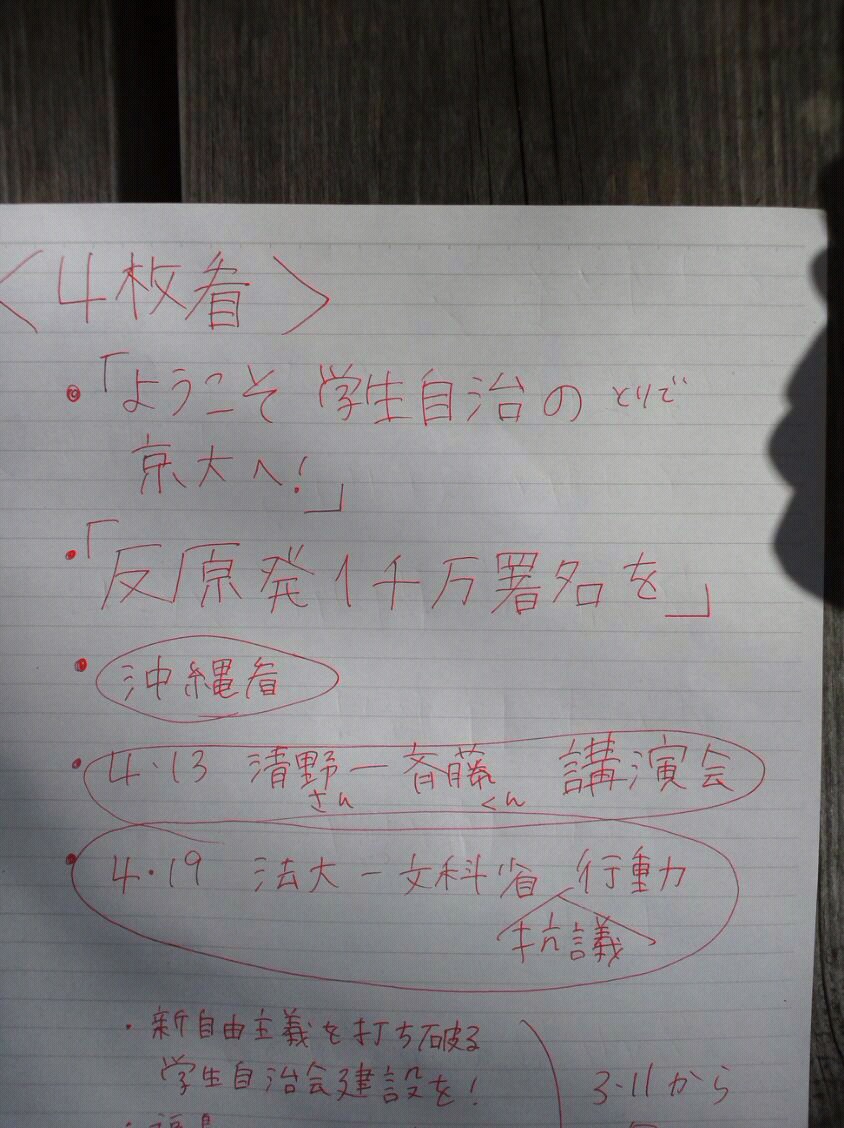 <4枚看>
・「ようこそ 学生自治の とりで
京大へ!」
・「反原発1千万署名を」
・沖縄看
・4・13 清野さん一斉藤くん 講演会
・4・19 法大－文科省 抗議 行動
・新自由主義を打ち破る
学生自治会建設を!
3・11から
・福島